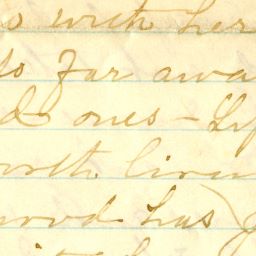 s with her
so far awa
d ones - Lif
orth livin
ood has g